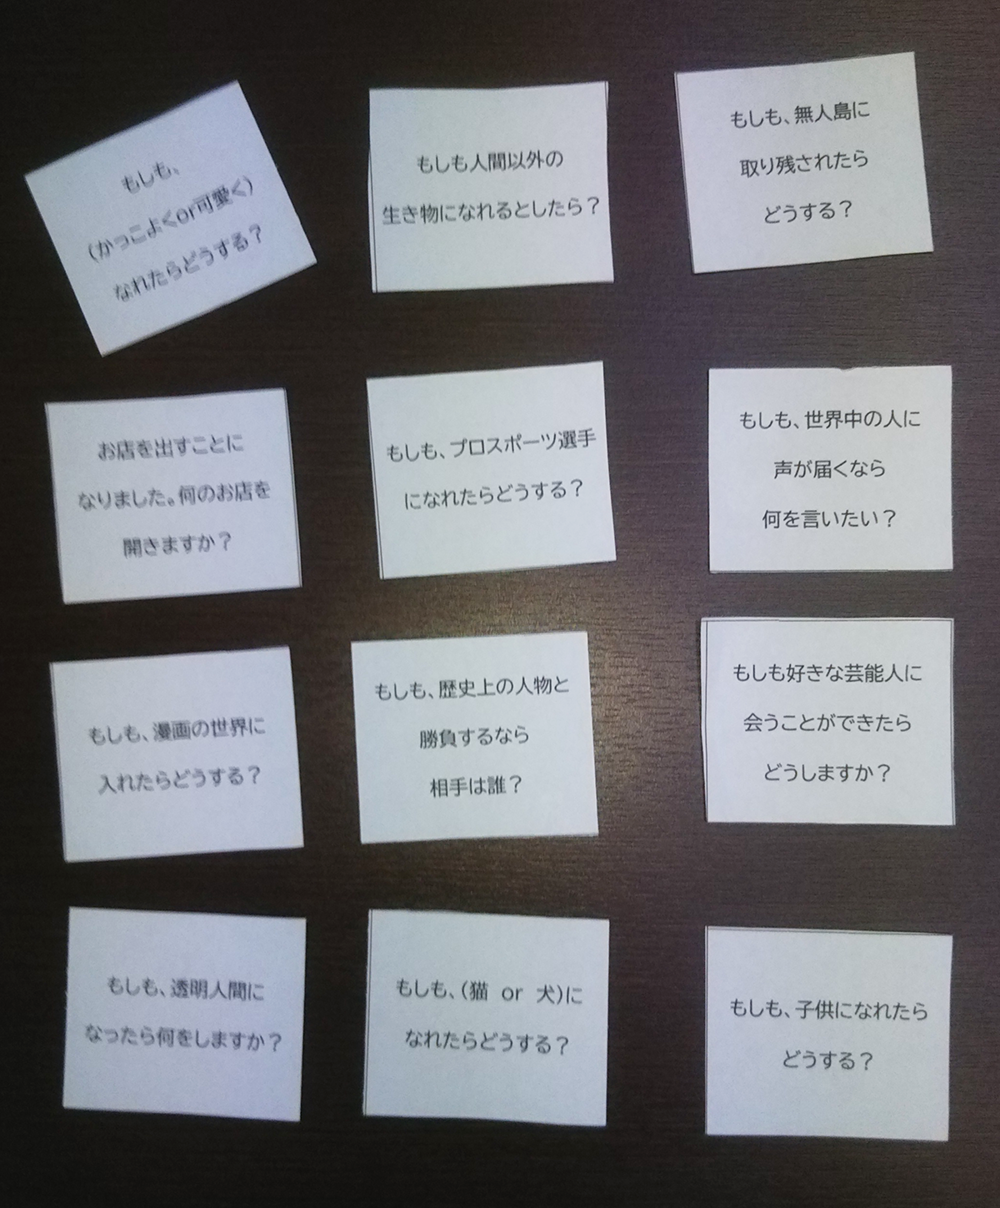 もしも、
（かっこよくor可愛く）
なれたらどうする？
もしも人間以外の
生き物になれるとしたら？
もしも、無人島に
取り残されたら
どうする？
お店を出すことに
なりました。何のお店を
開きますか？
もしも、プロスポーツ選手
になれたらどうする？
もしも、世界中の人に
声が届くなら
何を言いたい？
もしも、漫画の世界に
入れたらどうする？
もしも、歴史上の人物と
勝負するなら
相手は誰？
もしも好きな芸能人に
会うことができたら
どうしますか？
もしも、透明人間に
なったら何をしますか？
もしも、（猫　or　犬）に
なれたらどうする？
もしも、子供になれたら
どうする？